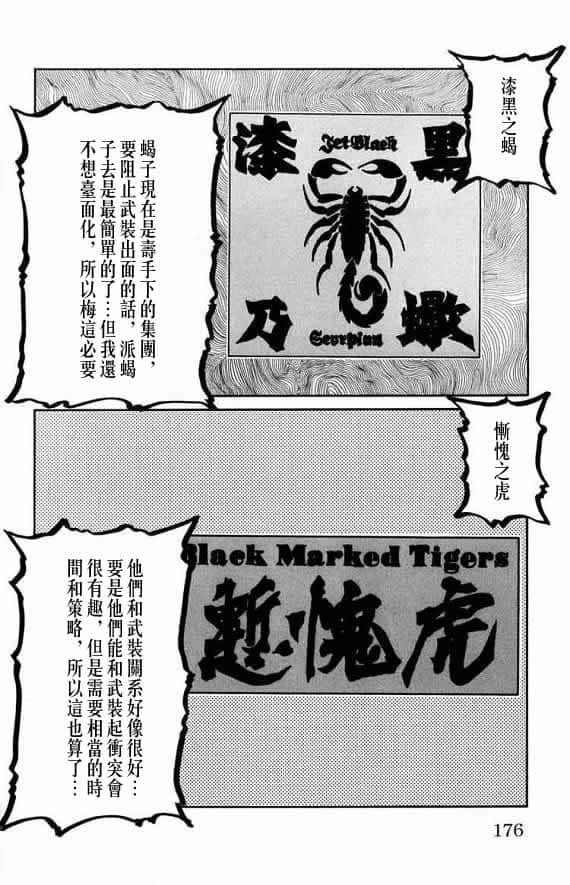 漆黑之蝎
漆 Jet Black 黑
乃 Scorpion 蠍
蝎子現在是壽手下的集團，
要阻止武裝出面的話，派蝎
子去是最簡單的了…但我還
不想臺面化，所以梅這必要
慚愧之虎
Black Marked Tigers
慙愧虎
他們和武裝關系好像很好…
要是他們能和武裝起衝突會
很有趣，但是需要相當的時
間和策略，所以這也算了…
176